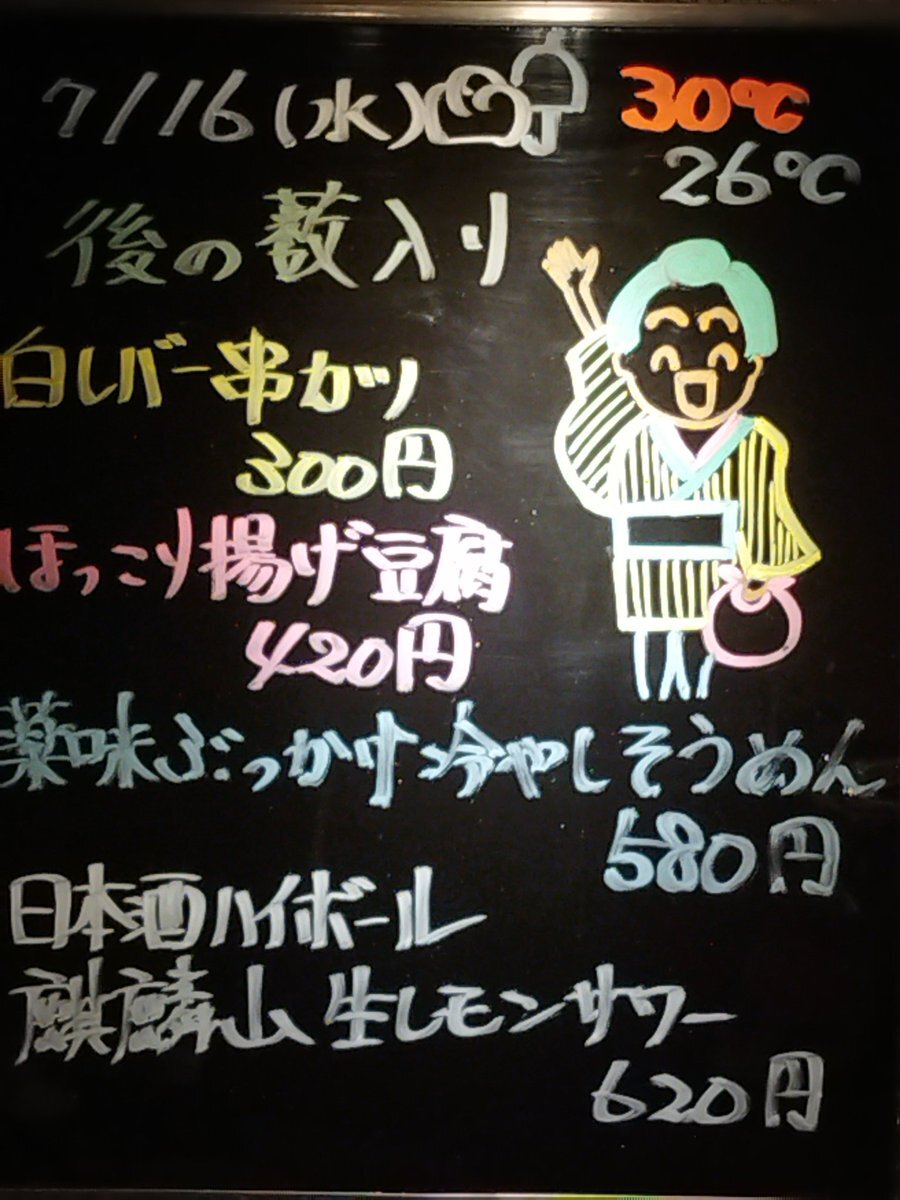 7/16(水) 30℃
26℃
後の薮入り
白レバー串カツ
300円
ほっこり揚げ豆腐
420円
薬味ぶっかけ冷やしそうめん
580円
日本酒ハイボール
麒麟山 生レモンサワー
620円